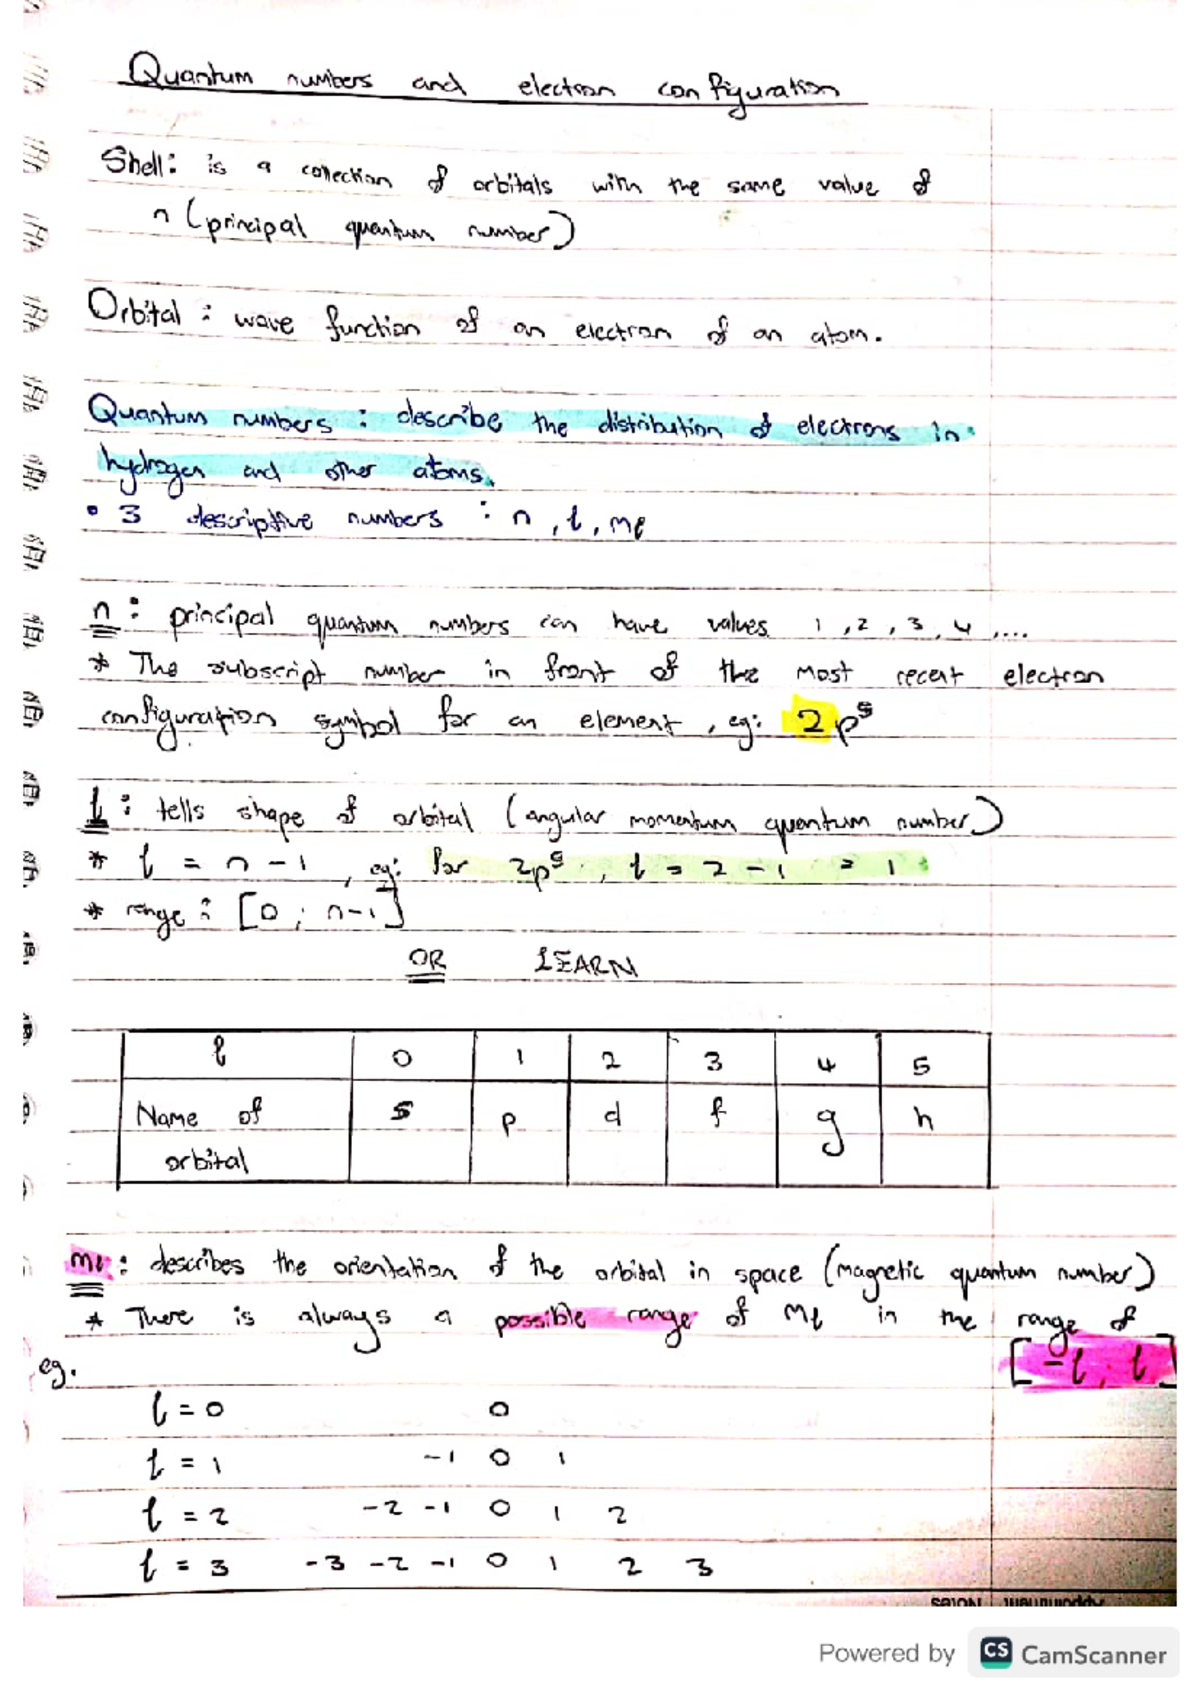 Quantum numbers and electron configuration
Shell: is a collection of orbitals with the same value of
n (principal quantum number)
Orbital : wave function of an electron of an atom.
Quantum numbers : describe the distribution of electrons in
hydrogen and other atoms.
• 3 descriptive numbers : n , l , ml
n : principal quantum numbers can have values 1 , 2 , 3 , 4 , ...
* The subscript number in front of the most recent electron
configuration symbol for an element , eg: 2p⁵
l : tells shape of orbital (angular momentum quantum number)
* l = n - 1 , eg: for 2p⁵ , l = 2 - 1 = 1
* range : [0 ; n-1]
OR LEARN
l 0 1 2 3 4 5
Name of s p d f g h
orbital
ml : describes the orientation of the orbital in space (magnetic quantum number)
* There is always a possible range of ml in the range of
[-l , l]
eg.
l = 0 0
l = 1 -1 0 1
l = 2 -2 -1 0 1 2
l = 3 -3 -2 -1 0 1 2 3
Appointment Notes
Powered by CS CamScanner